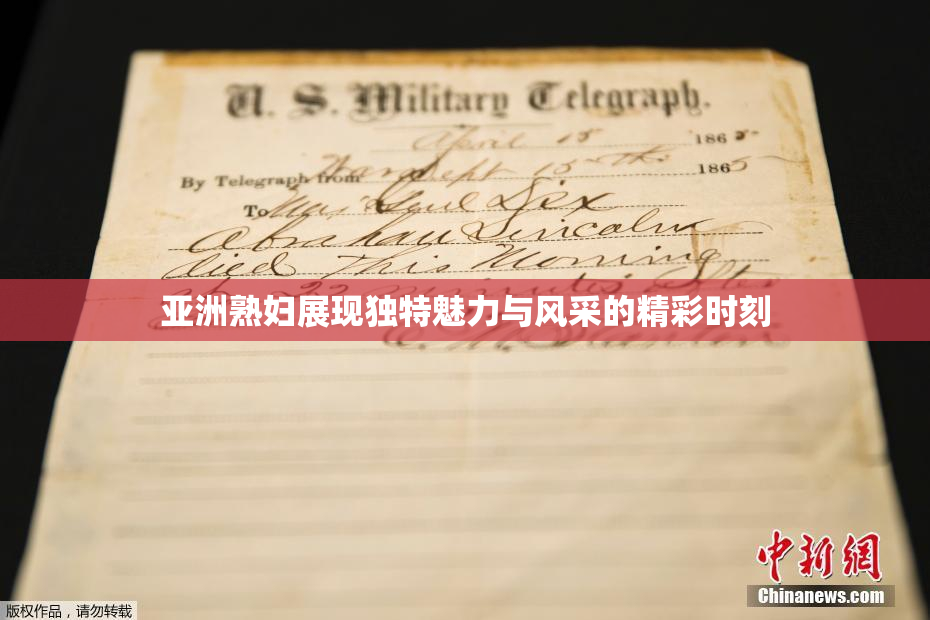 U. S. Military Telegraph.
April 15 1865
By Telegraph from War Dept 15th 1865
To Maj Genl Dix
Abraham Lincoln
died This Morning
at 22 minutes after
亚洲熟妇展现独特魅力与风采的精彩时刻
E. M. Stanton
中新网
Chinanews.com
版权作品，请勿转载